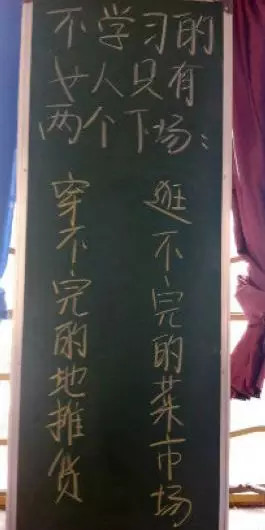 不学习的
女人只有
两个下场：
逛不完的菜市场
穿不完的地摊货